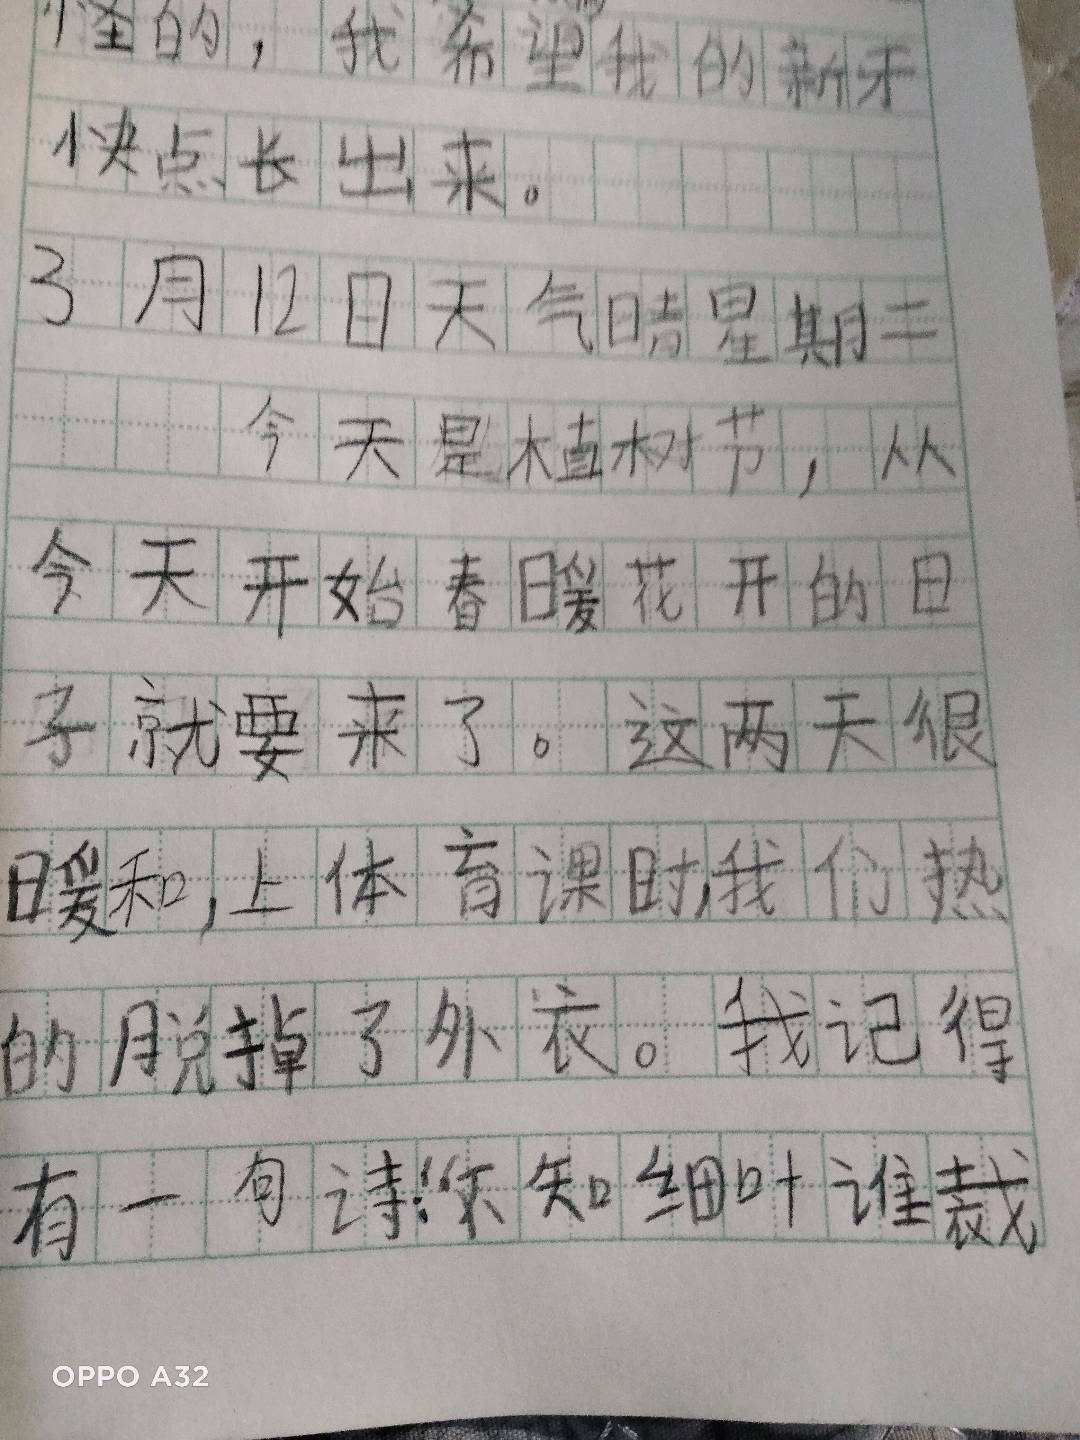 怪的,我希望我的新牙
快点长出来。
3月12日天气晴星期二
今天是植树节,从
今天开始春暖花开的日
子就要来了。这两天很
暖和,上体育课时,我们热
的脱掉了外衣。我记得
有一句诗:“不知细叶谁裁
OPPO A32